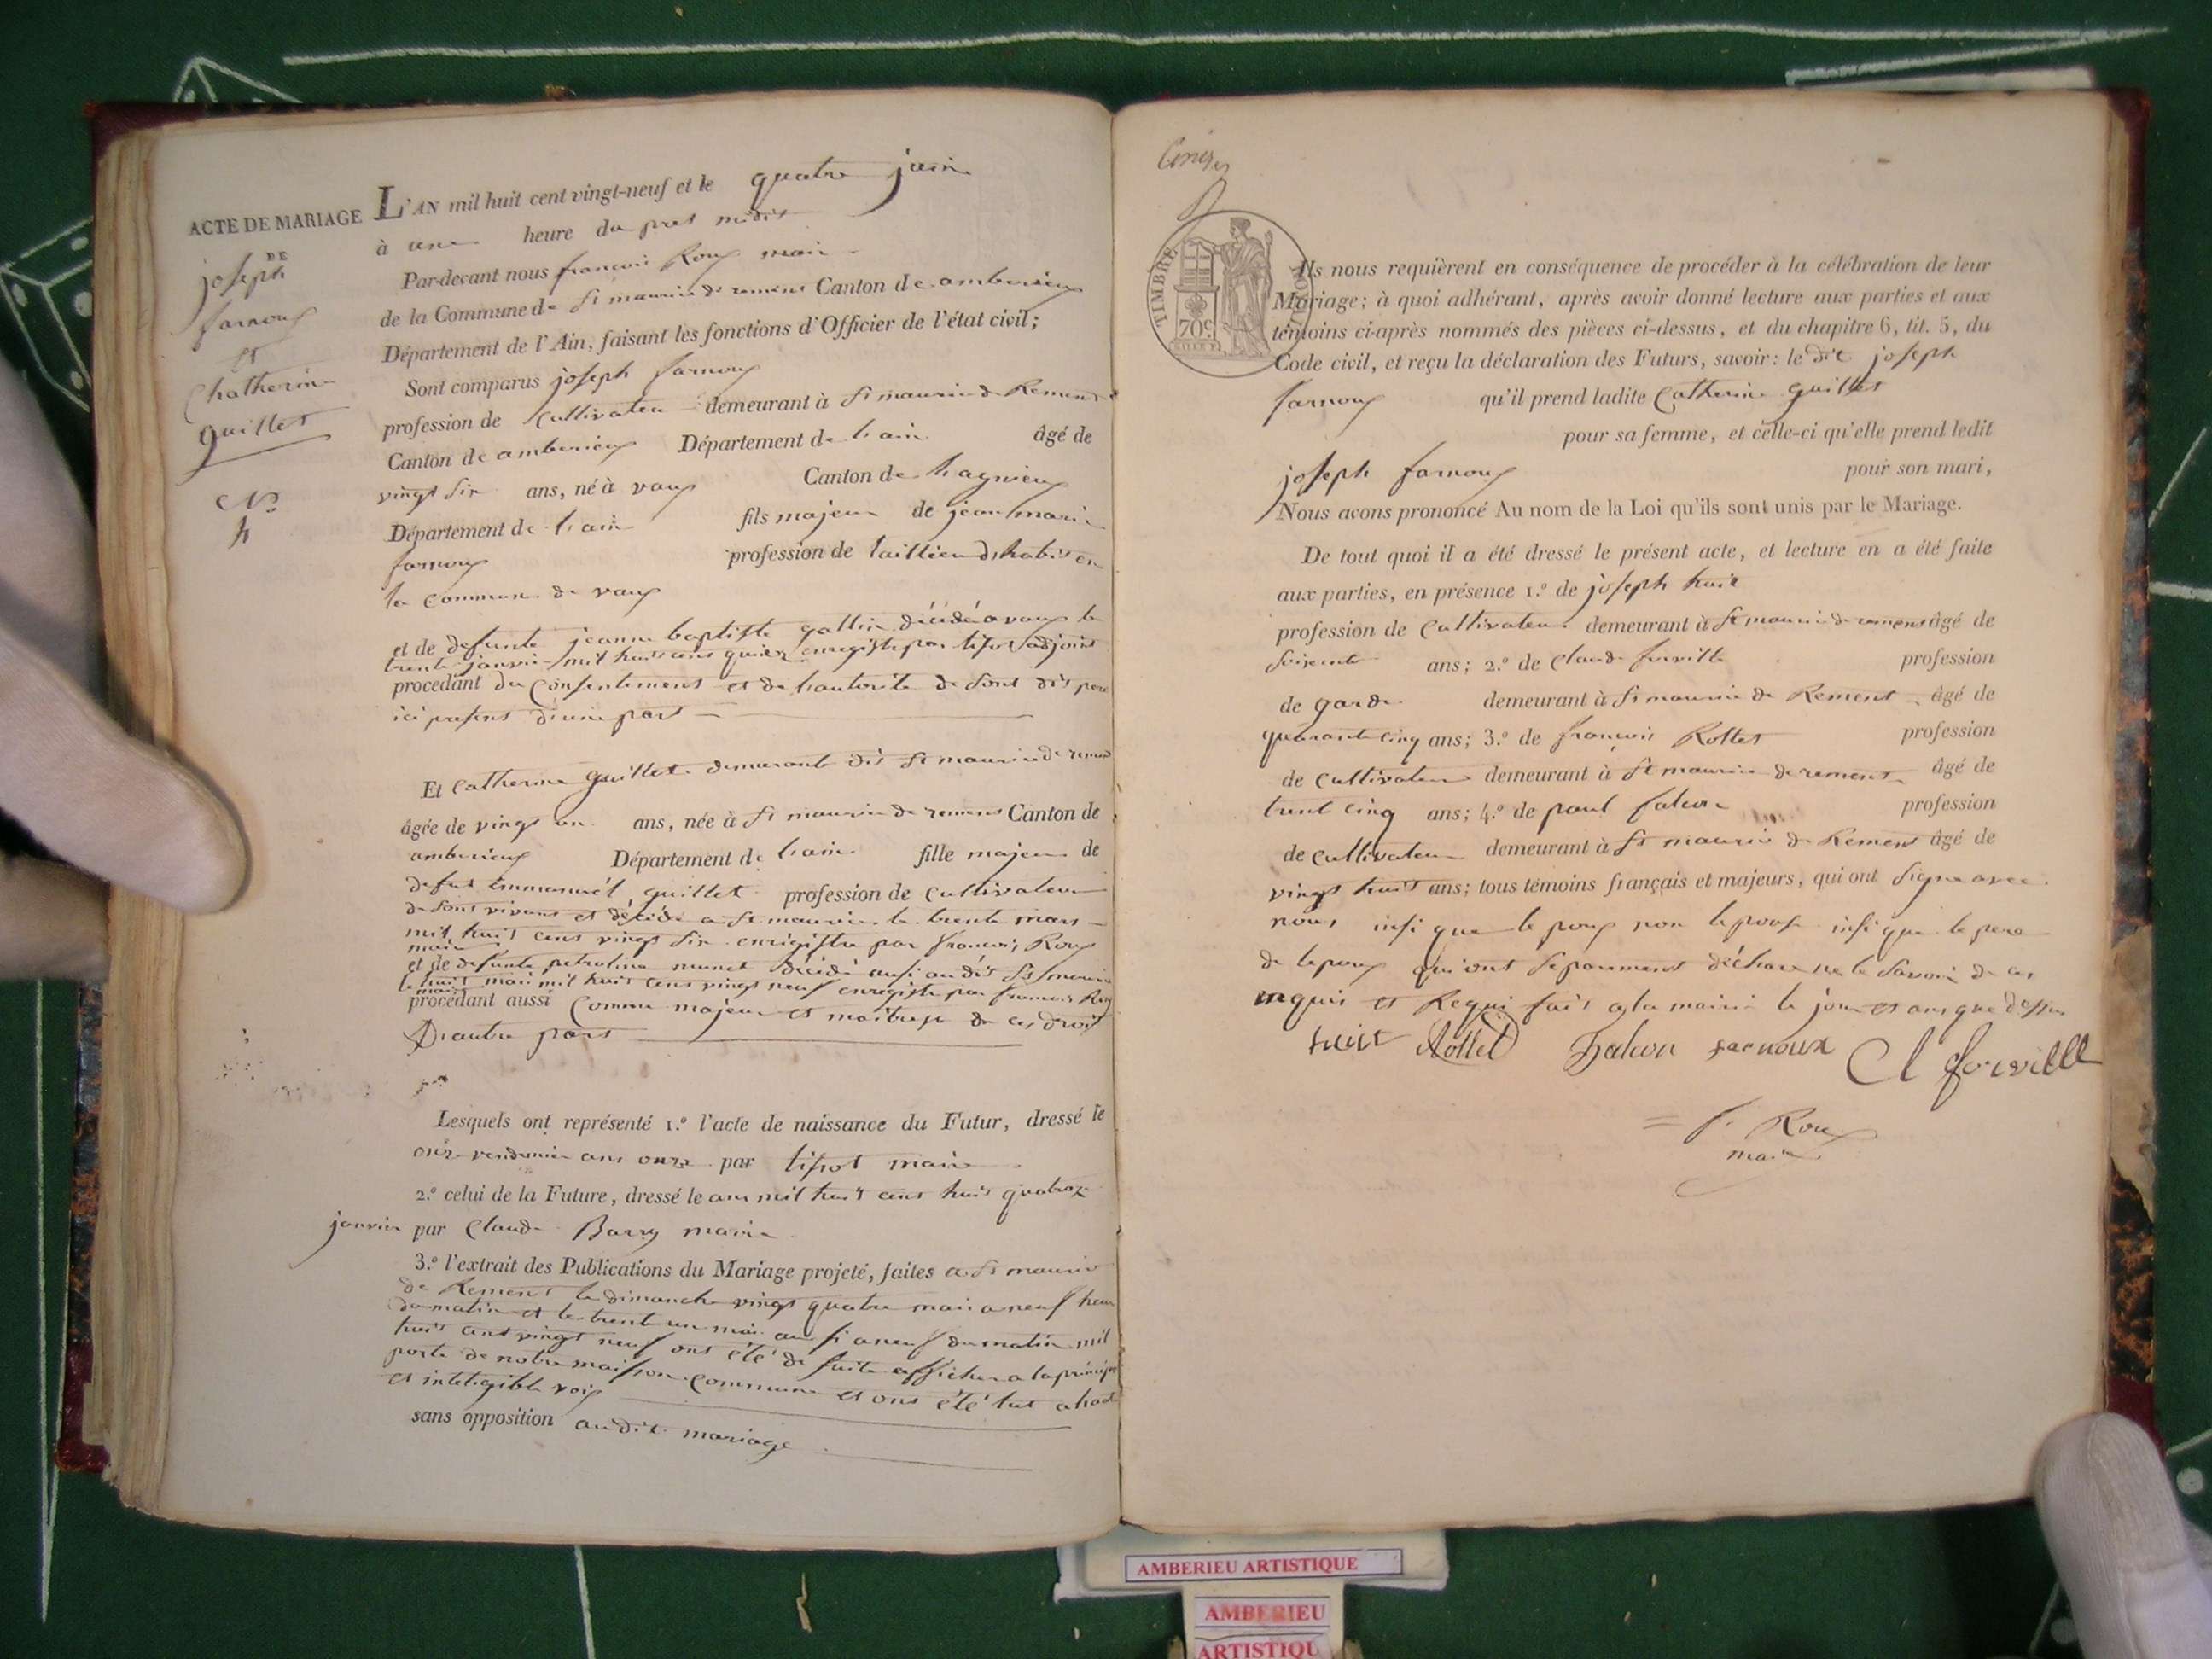 ACTE DE MARIAGE
DE
joseph
farnoux
et
Chatherine
guillet
No
4
L'AN mil huit cent vingt-neuf et le quatre juin
à une heure du pres midit
Par-devant nous francois Roux maire
de la Commune de St maurice de remens Canton de amberieux
Département de l'Ain, faisant les fonctions d'Officier de l'état civil;
Sont comparus joseph farnoux
profession de Cultivateur demeurant à St maurice de Remens
Canton de amberieux Département de lain âgé de
vingt six ans, né à vaux Canton de lagnieux
Département de lain fils majeur de jean marie
farnoux profession de taillieur dhabit en
la commune de vaux
et de defunte jeanne baptiste gallin décédé a vaux le
trente janvier mil huit cent quinze enregistre par tissot adjoint
procédant du Consentement et de lautorite de sont dit pere
ici present d'une part
Et Catherine guillet demeurante dit St maurice de remens
âgée de vingt un ans, née à St maurice de remens Canton de
amberieux Département de lain fille majeure de
defut Emmanuel guillet profession de Cultivateur
de sont vivant et décédé a St maurice le trente mars
mil huit cent vingt six enrigistre par francois Roux
maire
et de defunte petroline munet décédé ausi audit St maurice
le huit mai mil huit cent vingt neuf enregistre par francois Roux
maire
procédant aussi Comme majeur et maitresse de ces droit
D'autre part
Lesquels ont représenté 1.º l'acte de naissance du Futur, dressé le
onze vendemier ans onze par tissot maire
2.º celui de la Future, dressé le ans mil huit cent huit quatorze
janvier par Claude Barry maire
3.º l'extrait des Publications du Mariage projeté, faites a St maurice
de Remens le dimanche vingt quatre mai a neuf heure
du matin et le trente un mai ausi a neuf du matin mil
huit cent vingt neuf ont été de suite afficher a la principal
porte de notre maison commune et ont été lut a haute
et inteligible voix
sans opposition audit mariage
TIMBRE ROYAL
70c
Ils nous requièrent en conséquence de procéder à la célébration de leur
Mariage; à quoi adhérant, après avoir donné lecture aux parties et aux
témoins ci-après nommés des pièces ci-dessus, et du chapitre 6, tit. 5, du
Code civil, et reçu la déclaration des Futurs, savoir: le dit joseph
farnoux qu'il prend ladite Catherine guillet
pour sa femme, et celle-ci qu'elle prend ledit
joseph farnoux pour son mari,
Nous avons prononcé Au nom de la Loi qu'ils sont unis par le Mariage.
De tout quoi il a été dressé le présent acte, et lecture en a été faite
aux parties, en présence 1.º de joseph huit
profession de Cultivateur demeurant à St maurice de remens âgé de
soixante ans; 2.º de Claude forville profession
de garde demeurant à St maurice de Remens âgé de
quarante cinq ans; 3.º de francois Rollet profession
de Cultivateur demeurant à St maurice de remens âgé de
trent cinq ans; 4.º de paul falcon profession
de cultivateur demeurant à St maurice de Remens âgé de
vingt huit ans; tous témoins français et majeurs, qui ont signe avec
nous insi que le poux non lepouse insi que le pere
de lepoux qui ont separement déclare ne le savoir de ce
enquis et Requi fait a la mairie le jour et ans que dessus
huit Rollet Falcon farnoux Cl forville
f. Roux
maire
AMBERIEU ARTISTIQUE
AMBERIEU
ARTISTIQU